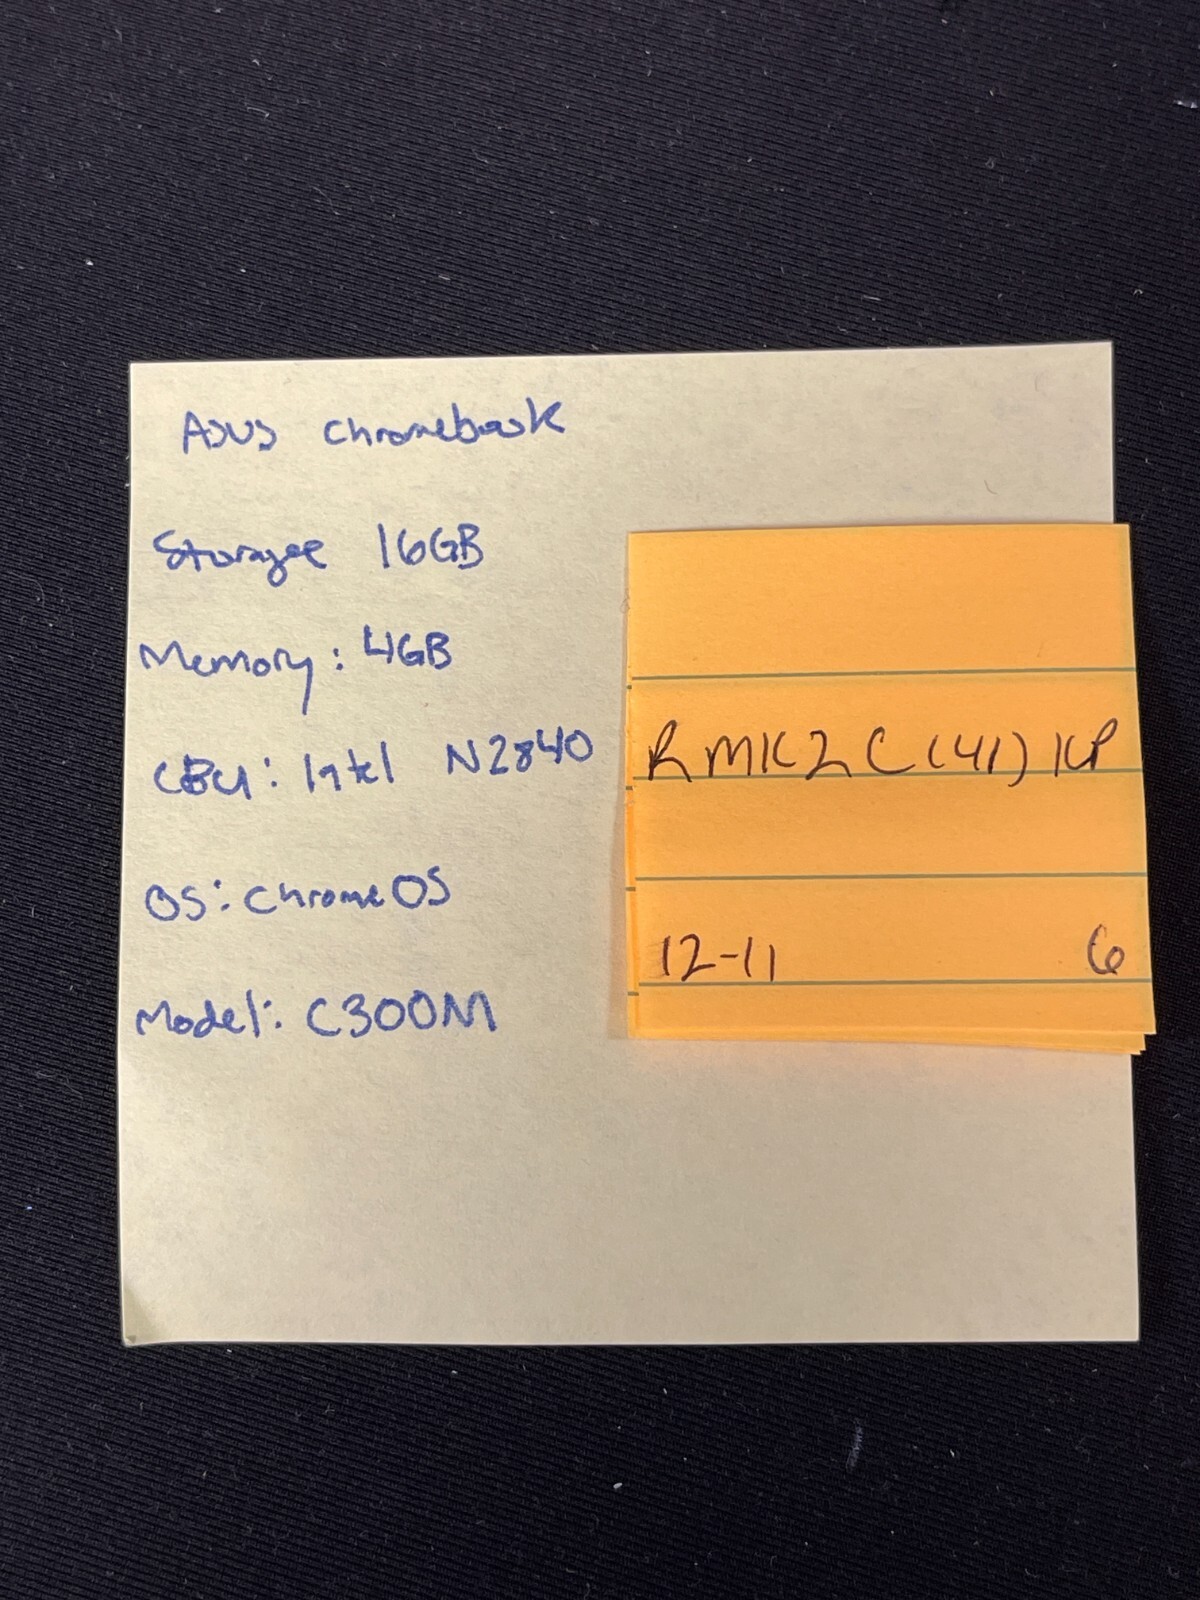 Asus Chromebook
Storage 16GB
Memory: 4GB
CPU: Intel N2840
OS: Chrome OS
Model: C300M
RMK2C(41)KP
12-11 6